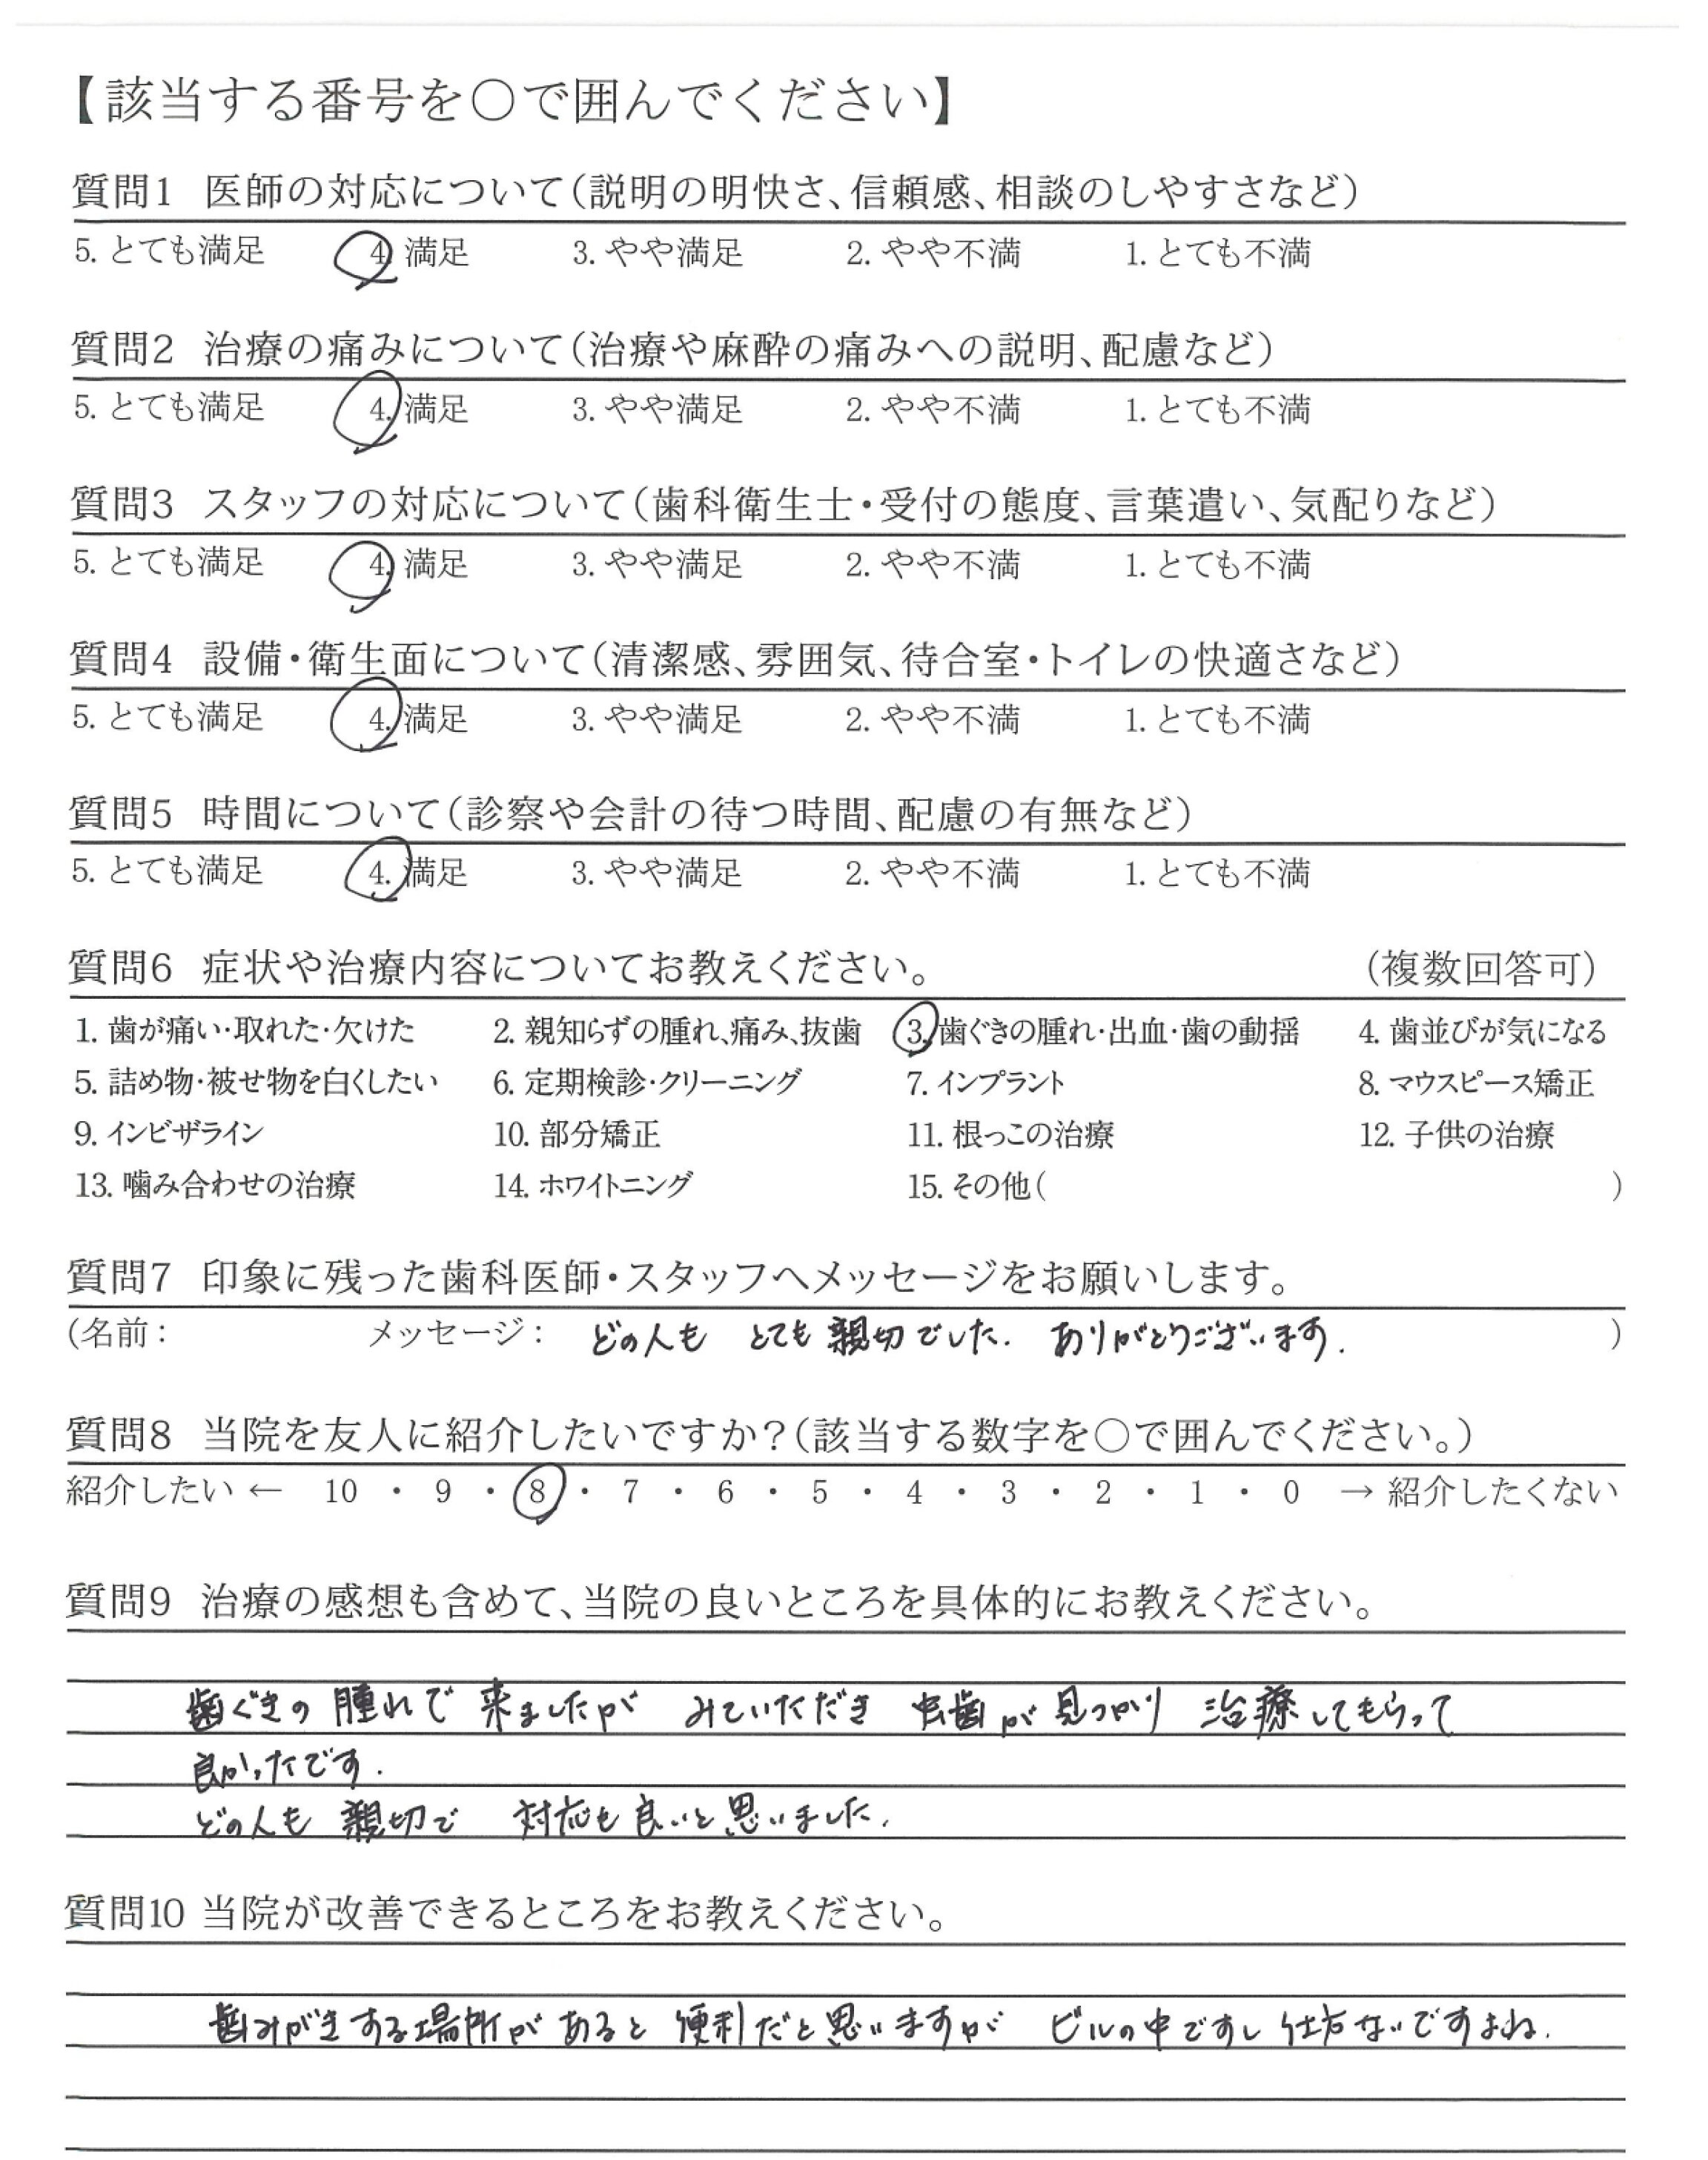 【該当する番号を○で囲んでください】
質問1 医師の対応について(説明の明快さ、信頼感、相談のしやすさなど)
5. とても満足 4. 満足 3. やや満足 2. やや不満 1. とても不満
質問2 治療の痛みについて(治療や麻酔の痛みへの説明、配慮など)
5. とても満足 4. 満足 3. やや満足 2. やや不満 1. とても不満
質問3 スタッフの対応について(歯科衛生士・受付の態度、言葉遣い、気配りなど)
5. とても満足 4. 満足 3. やや満足 2. やや不満 1. とても不満
質問4 設備・衛生面について(清潔感、雰囲気、待合室・トイレの快適さなど)
5. とても満足 4. 満足 3. やや満足 2. やや不満 1. とても不満
質問5 時間について(診察や会計の待つ時間、配慮の有無など)
5. とても満足 4. 満足 3. やや満足 2. やや不満 1. とても不満
質問6 症状や治療内容についてお教えください。 (複数回答可)
1. 歯が痛い・取れた・欠けた 2. 親知らずの腫れ、痛み、抜歯 3. 歯ぐきの腫れ・出血・歯の動揺 4. 歯並びが気になる
5. 詰め物・被せ物を白くしたい 6. 定期検診・クリーニング 7. インプラント 8. マウスピース矯正
9. インビザライン 10. 部分矯正 11. 根っこの治療 12. 子供の治療
13. 噛み合わせの治療 14. ホワイトニング 15. その他( )
質問7 印象に残った歯科医師・スタッフへメッセージをお願いします。
(名前: メッセージ: どの人も とても親切でした. ありがとうございます. )
質問8 当院を友人に紹介したいですか?(該当する数字を○で囲んでください。)
紹介したい ← 10 ・ 9 ・ 8 ・ 7 ・ 6 ・ 5 ・ 4 ・ 3 ・ 2 ・ 1 ・ 0 → 紹介したくない
質問9 治療の感想も含めて、当院の良いところを具体的にお教えください。
歯ぐきの 腫れで 来ましたが みていただき 虫歯が 見つかり 治療してもらって
良かったです.
どの人も 親切で 対応も良いと思いました.
質問10 当院が改善できるところをお教えください。
歯みがきする場所が あると 便利だと思いますが ビルの中ですし 仕方ないですよね.